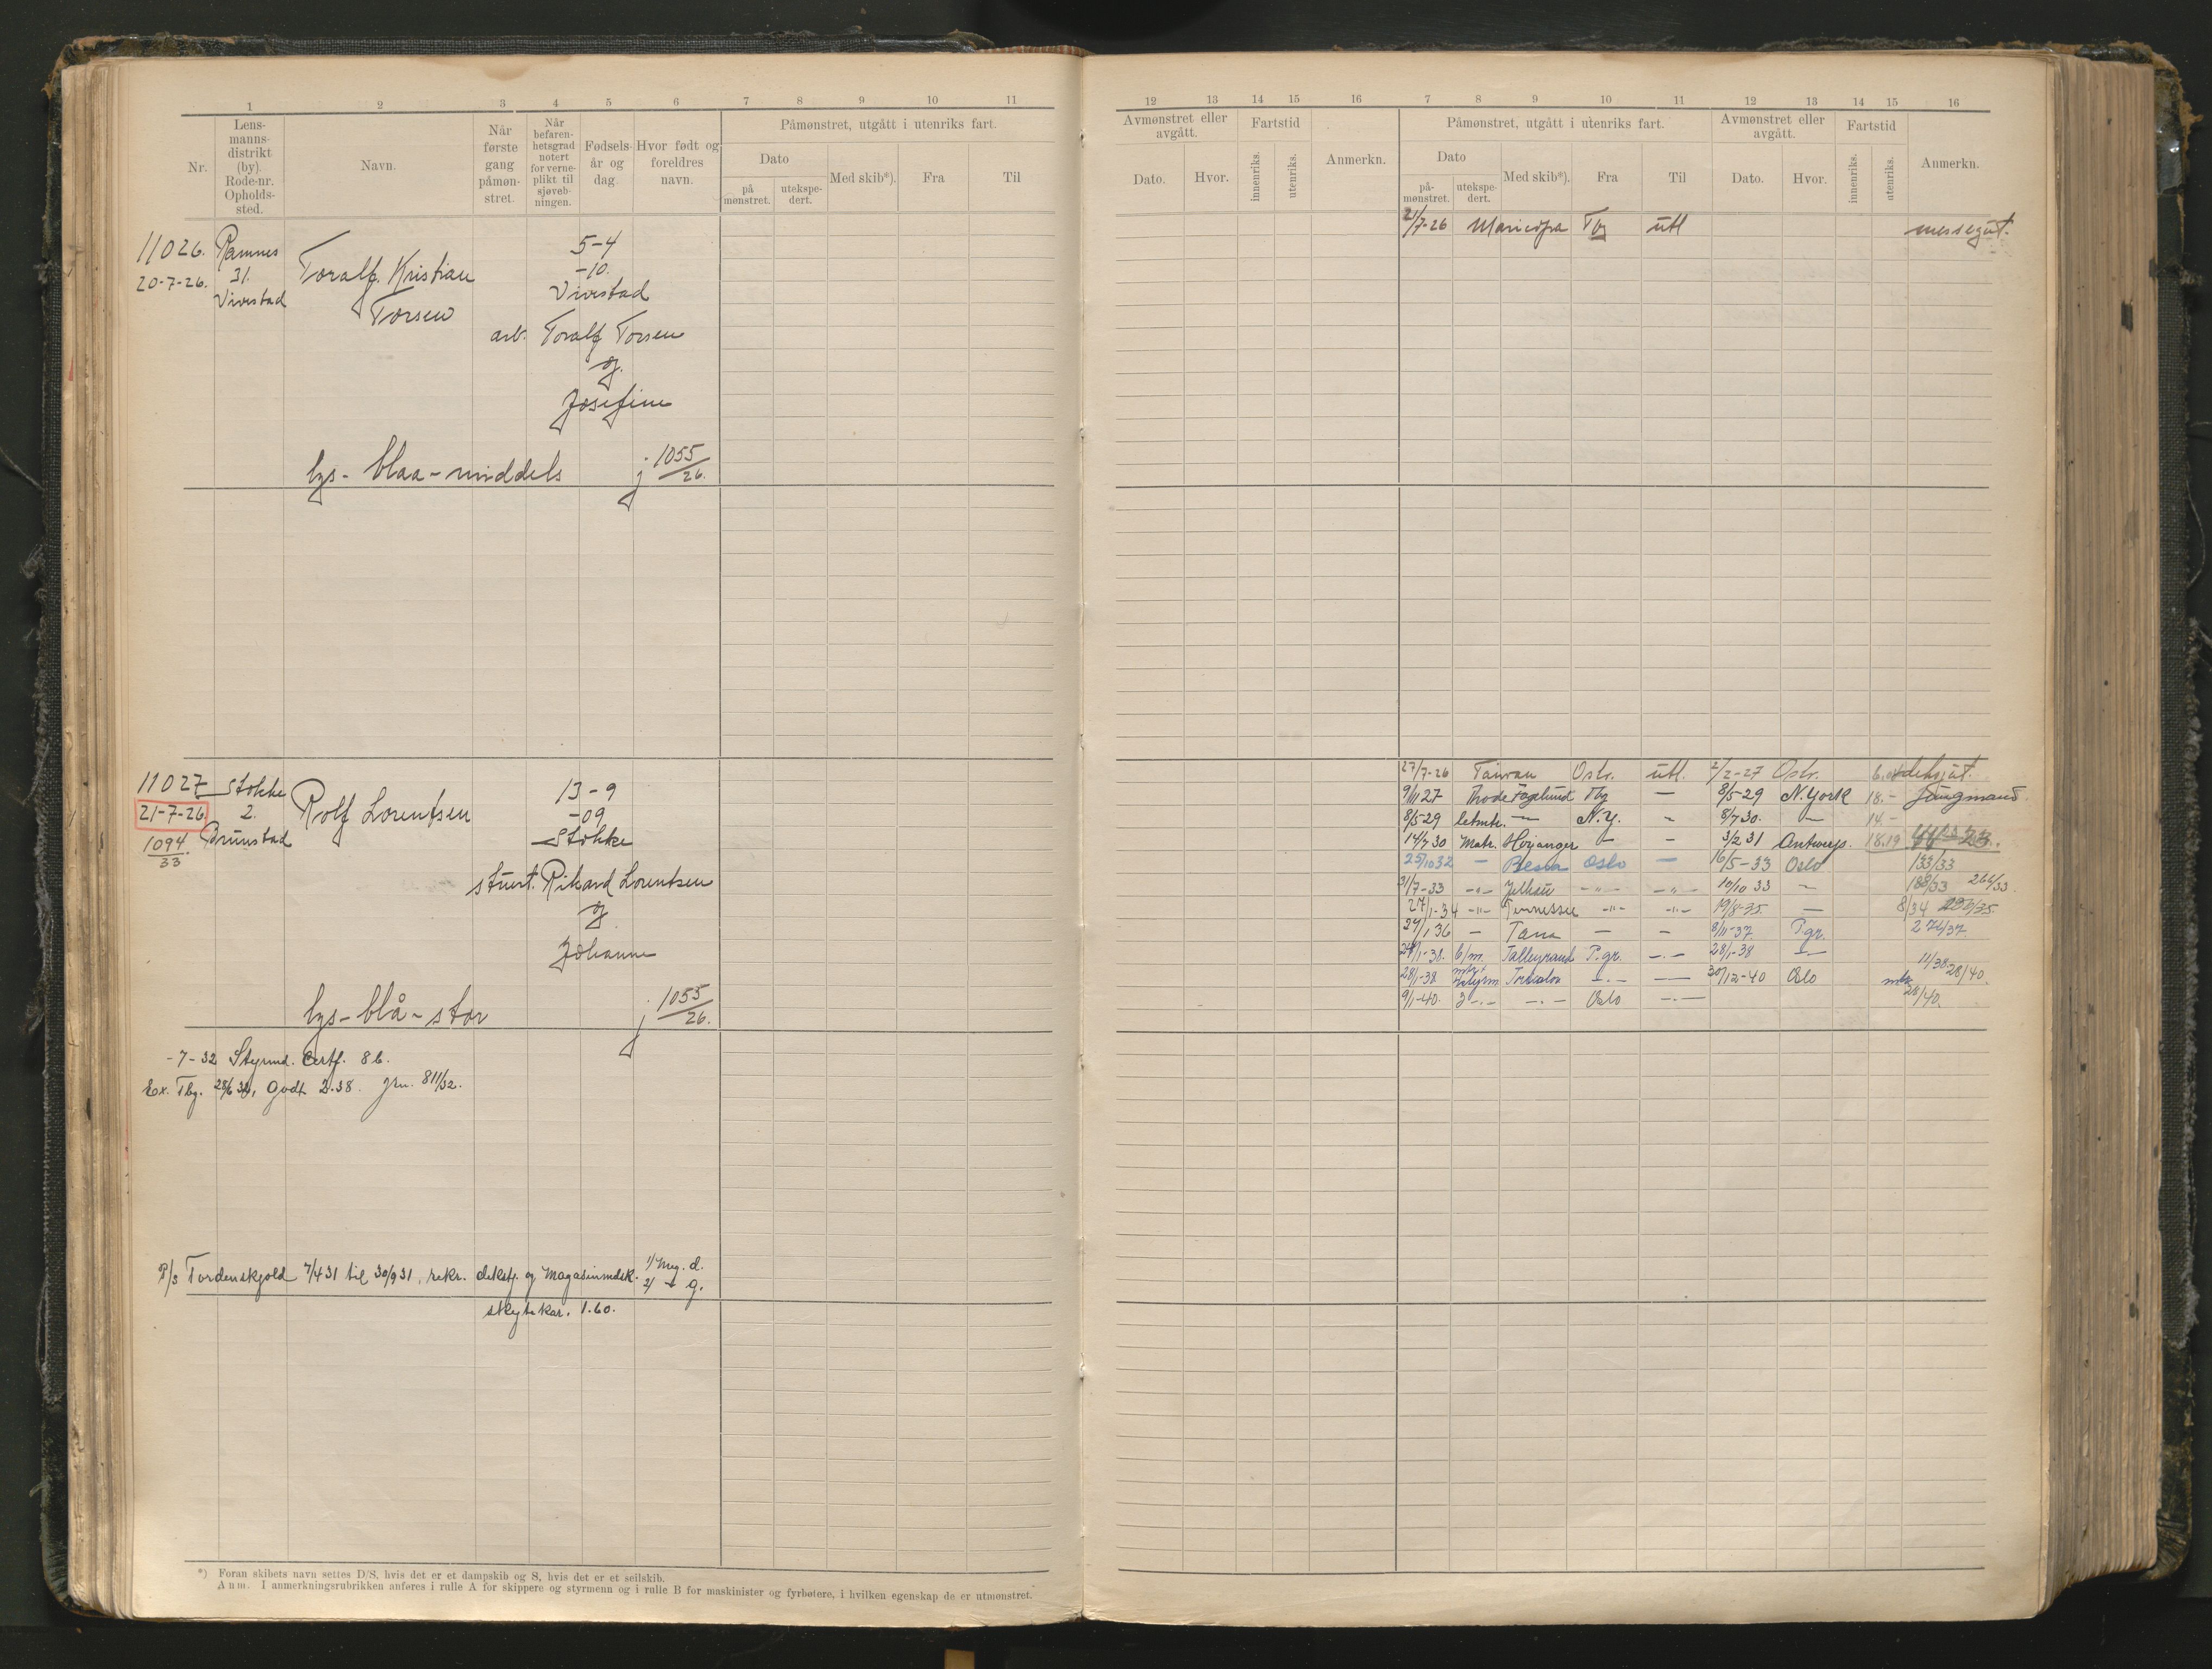 1 2 3 4 5 6 7 8 9 10 11
Nr.
Lens-
manns-
distrikt
(by).
Rode-nr.
Opholds-
sted.
Navn.
Når
første
gang
påmøn-
stret.
Når
befaren-
hetsgrad
notert
for verne-
plikt til
sjøveb-
ningen.
Fødsels-
år og
dag.
Hvor født og
foreldres
navn.
Påmønstret, utgått i utenriks fart.
Dato
på
mønstret.
utekspe-
dert.
Med skib*).
Fra
Til
11026.
20-7-26.
Ramnes
31.
Vivestad
Toralf Kristian
Torsen
5-4
-10.
Vivestad
arb. Toralf Torsen
og
Josefine
lys - blaa - middels
j 1055/26.
11027
21-7-26.
1094/33
Stokke
2.
Brunstad
Rolf Lorentsen
13-9
-09
Stokke
stuert. Rikard Lorentsen
og
Johanne
lys - blå - stor
j 1055/26.
-7-32 Styrmd. Certf. 86.
Ex. Tbg. 28/6 32, Godt 2.38. Jrn. 811/32.
P/s Tordenskjold 7/4 31 til 30/9 31, rekr. deksfj. og Magasinmdsk. 1/ Meg. d.
2/ - g.
skytekar. 1.60.
*) Foran skibets navn settes D/S, hvis det er et dampskib og S, hvis det er et seilskib.
Anm. I anmerkningsrubrikken anføres i rulle A for skippere og styrmenn og i rulle B for maskinister og fyrbøtere, i hvilken egenskap de er utmønstret.
12 13 14 15 16 7 8 9 10 11 12 13 14 15 16
Avmønstret eller
avgått.
Dato.
Hvor.
Fartstid
innenriks.
utenriks.
Anmerkn.
Påmønstret, utgått i utenriks fart.
Dato
på-
mønstret.
utekspe-
dert.
Med skib*).
Fra
Til
Avmønstret eller
avgått.
Dato.
Hvor.
Fartstid
innenriks.
utenriks.
Anmerkn.
21/7-26 Maricopa Tbg utl messegut.
27/7-26 Taiwan Ostr. utl. 2/2-27 Ostr. deksgut.
9/11 27 Thode Fagelund Tbg — 8/5-29 N.York 18.- Jungmand
8/5-29 letmtr. — N.Y. - 8/7 30. — 14.-
14/7 30 Matr. Høyanger - - 3/2 31 Antwerp. 18.19
25/10 32 - Bessa Oslo — 16/5-33 Oslo 133/33
31/7-33 -"- -"- -"- 10/10 33 - 188/33 266/33
27/1-34 -"- Tennessee -"- -"- 19/8-35. —
27/1 36 - Tana — - 8/11-37 P.gr. 274/37
24/1-38. b/m. Talleyrand P.gr. -.- 28/1-38 -.- 11/38
28/1-38 -.- — 30/12-40 Oslo 28/40
9/1-40. 3 -.- -.- Oslo -.- 28/40.